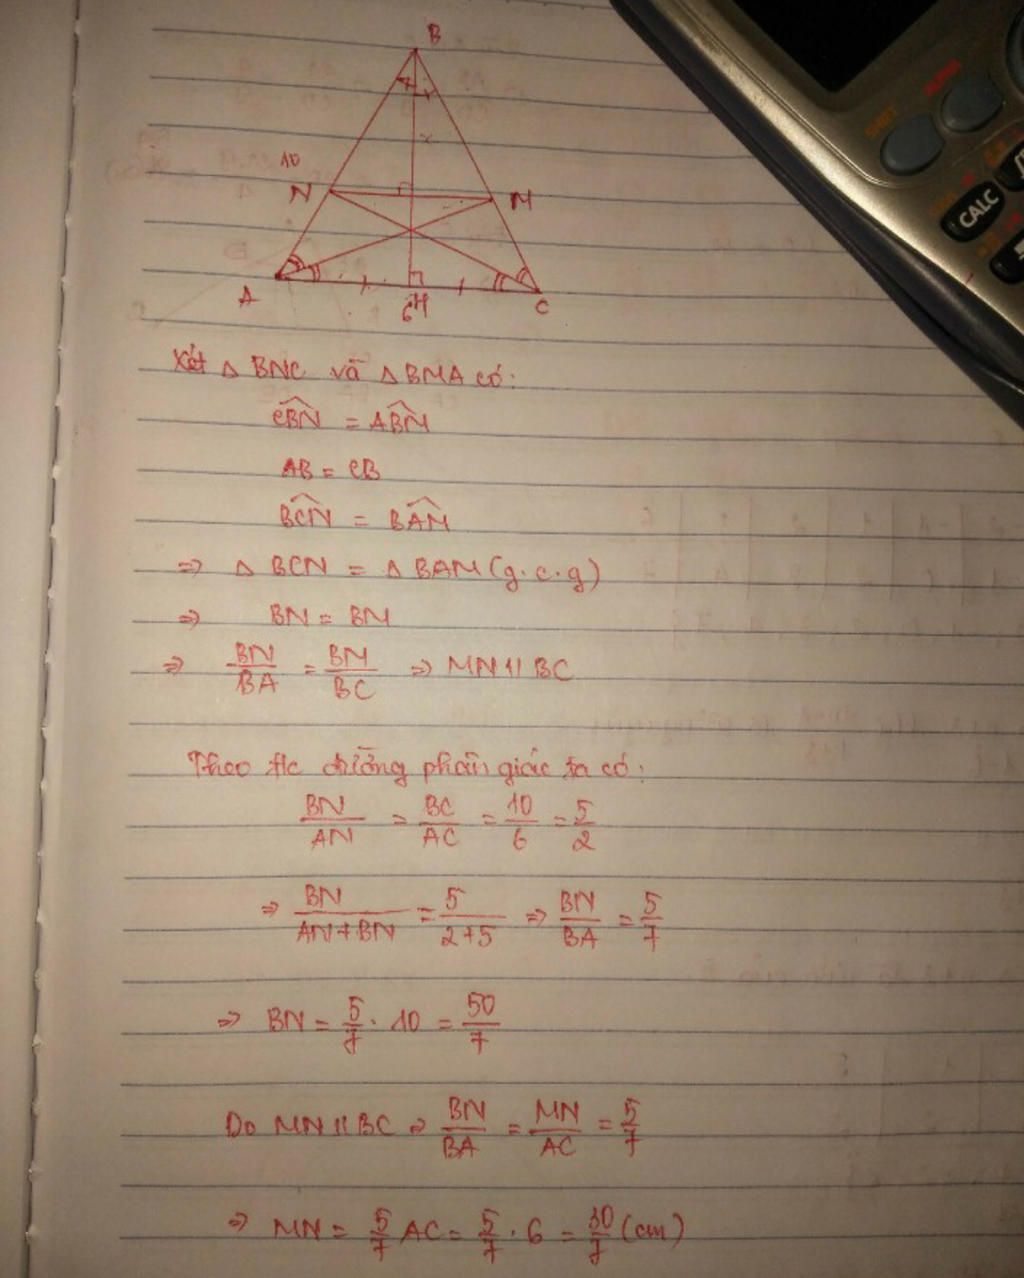 B
x
10
N
M
A
6
H
C
SHIFT
ALPHA
CALC
Xét △ BNC và △ BMA có:
CBN = ABM
AB = CB
BCN = BAM
=> △ BCN = △ BAM (g.c.g)
=> BN = BM
=> BN/BA = BM/BC => MN // BC
Theo t/c đường phân giác ta có:
BN/AN = BC/AC = 10/6 = 5/2
=> BN/AN+BN = 5/2+5 => BN/BA = 5/7
=> BN = 5/7 . 10 = 50/7
Do MN // BC => BN/BA = MN/AC = 5/7
=> MN = 5/7 AC = 5/7 . 6 = 30/7 (cm)